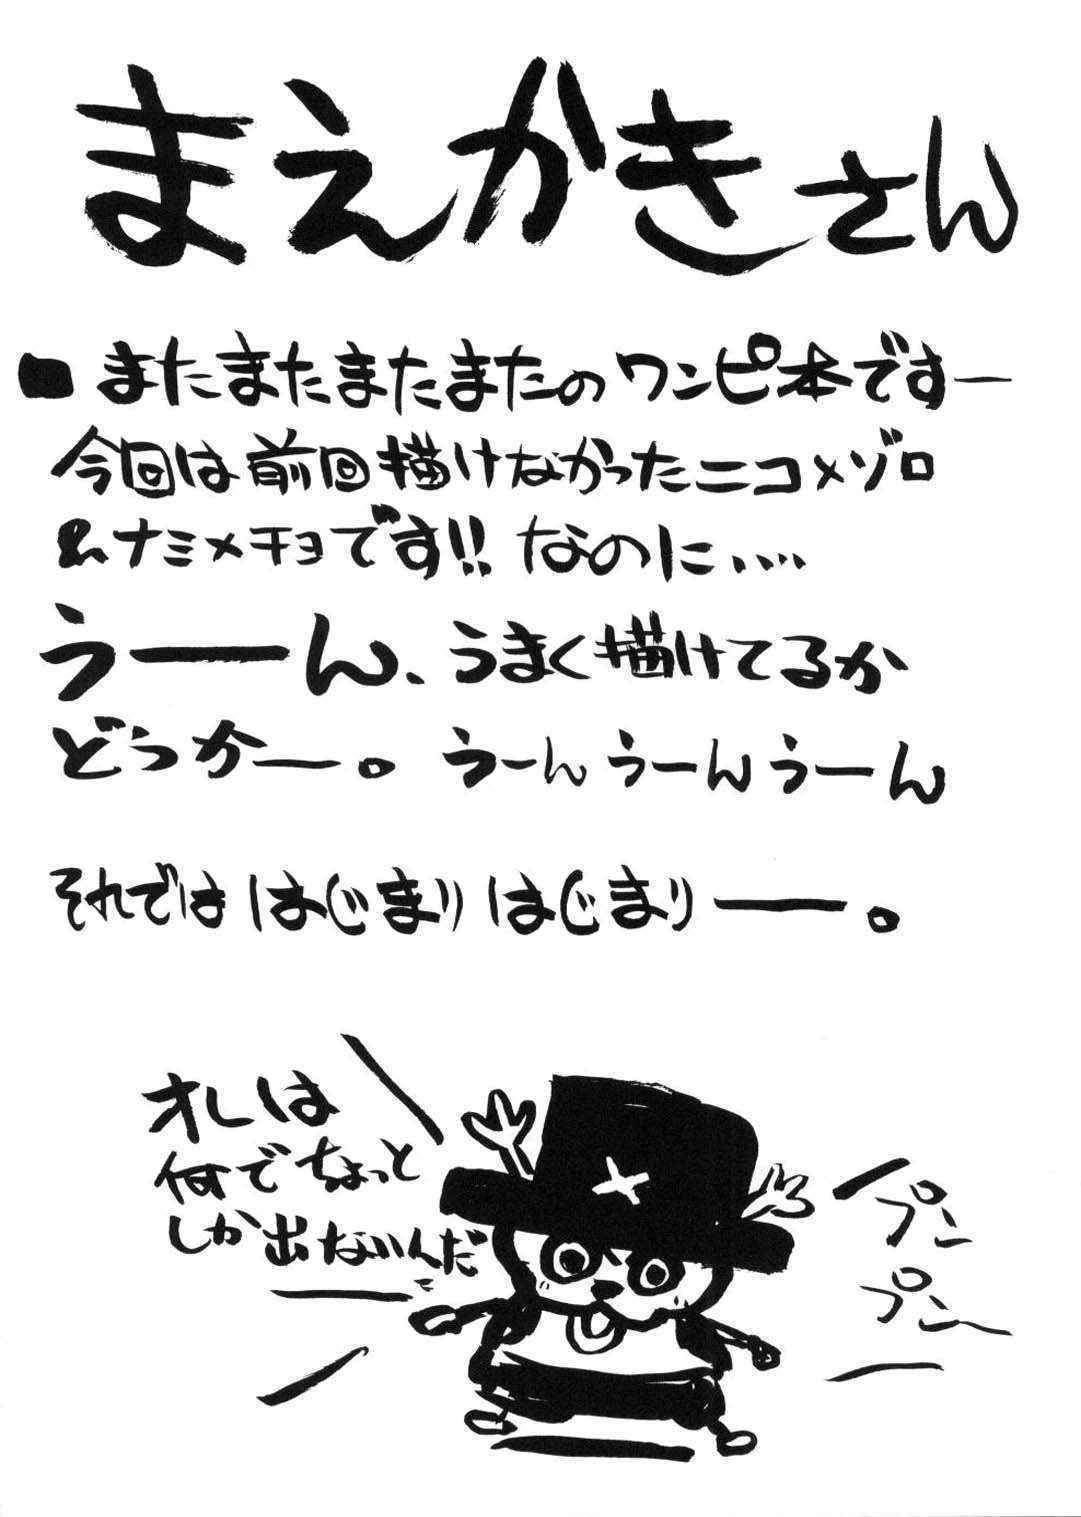 まえかきさん
■またまたまたまたのワンピ本ですー
今回は前回描けなかったニコ×ゾロ
&ナミ×チョです!!なのに、、、、
うーーん、うまく描けてるか
どうかー。うーんうーんうーん
それでははじまりはじまりー。
オレは
何でちょっと
しか出ないんだ
プン
プン